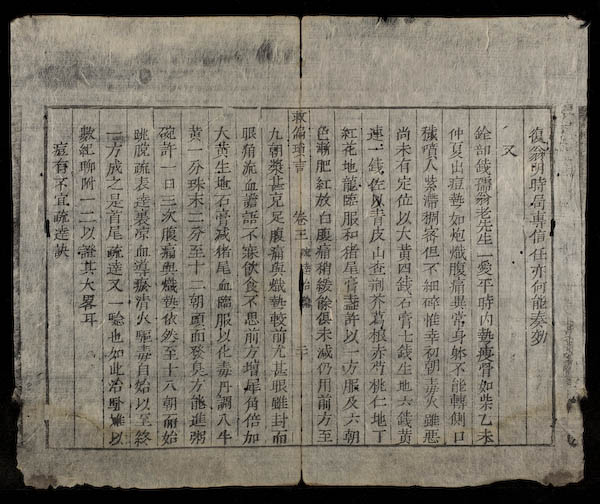 復翁明時局專信任亦何能奏效
又
銓部錢孺翁老先生一愛平時內熱瘦骨如柴乙未
仲夏出痘熱如炮熾腹痛異常身躰不能轉側口
穢噴人紫滯稠密但不細碎惟幸初朝毒火雖惡
尚未有定位以大黃四錢石膏七錢生地六錢黃
連一錢佐以青皮山查荆芥葛根赤芍桃仁地丁
紅花地龍臨服和猪尾膏盞許以一方服及六朝
色漸肥紅放白腹痛稍緩餘俱未減仍用前方至
救偏瑣言 卷三
九朝漿甚充足腹痛與熾熱較前尤甚眼雖封而
眼角流血譫語不寐飲食不思前方增犀角倍加
大黃生地石膏减猪尾血臨服以化毒丹調八牛
黃一分珠末二分至十二朝頭面發臭方能進粥
碗許一日三次腹痛與熾熱依然至十八朝面始
脫脫疏表達裏凉血導瘀清火驅毒自始以至終
一方成之是首尾疏達又一驗也如此治驗難以
數紀聊附一二以證其大畧耳
痘有不宜疏達訣